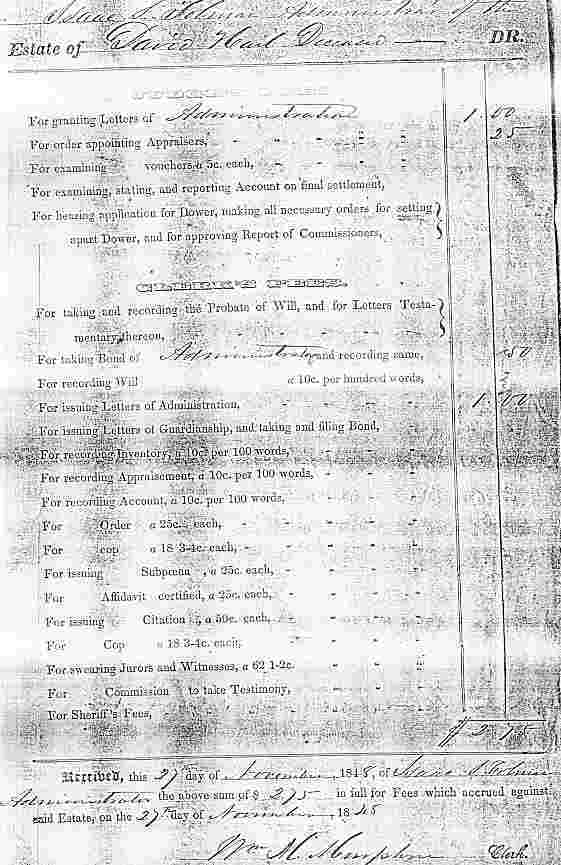 Isaac S. Administrator of the
Estate of David Hart Deceased DR.
For granting Letters of Administration 1 00
For order appointing Appraisers, - - - - 25
For examining vouchers a 5c. each, - - - -
For examining, stating, and reporting Account on final settlement,
For hearing application for Dower, making all necessary orders for setting }
apart Dower, and for approving Report of Commissioners, }
CLERK'S FEES.
For taking and recording the Probate of Will, and for Letters Testa- }
mentary thereon, - - - - }
For taking Bond of Administrator and recording same, 50
For recording Will a 10c. per hundred words,
For issuing Letters of Administration, - - - - 1 00
For issuing Letters of Guardianship, and taking and filing Bond, -
For recording Inventory, a 10c. per 100 words, - - -
For recording Appraisement, a 10c. per 100 words, - - -
For recording Account, a 10c. per 100 words, - - -
For Order a 25c. each, - - - - -
For cop a 18 3-4c. each, - - - - -
For issuing Subpœna , a 25c. each, - - - -
For Affidavit certified, a 25c. each, - - - -
For issuing Citation , a 50c. each, - - - -
For Cop a 18 3-4c. each, - - - -
For swearing Jurors and Witnesses, a 62 1-2c. - - -
For Commission to take Testimony, - - -
For Sheriff's Fees, - - - - -
$ 2 75
Received, this 27th day of November, 1848, of Isaac S.
Administrator the above sum of $ 2.75 in full for Fees which accrued against
said Estate, on the 27th day of November 1848
Wm M. Clerk.